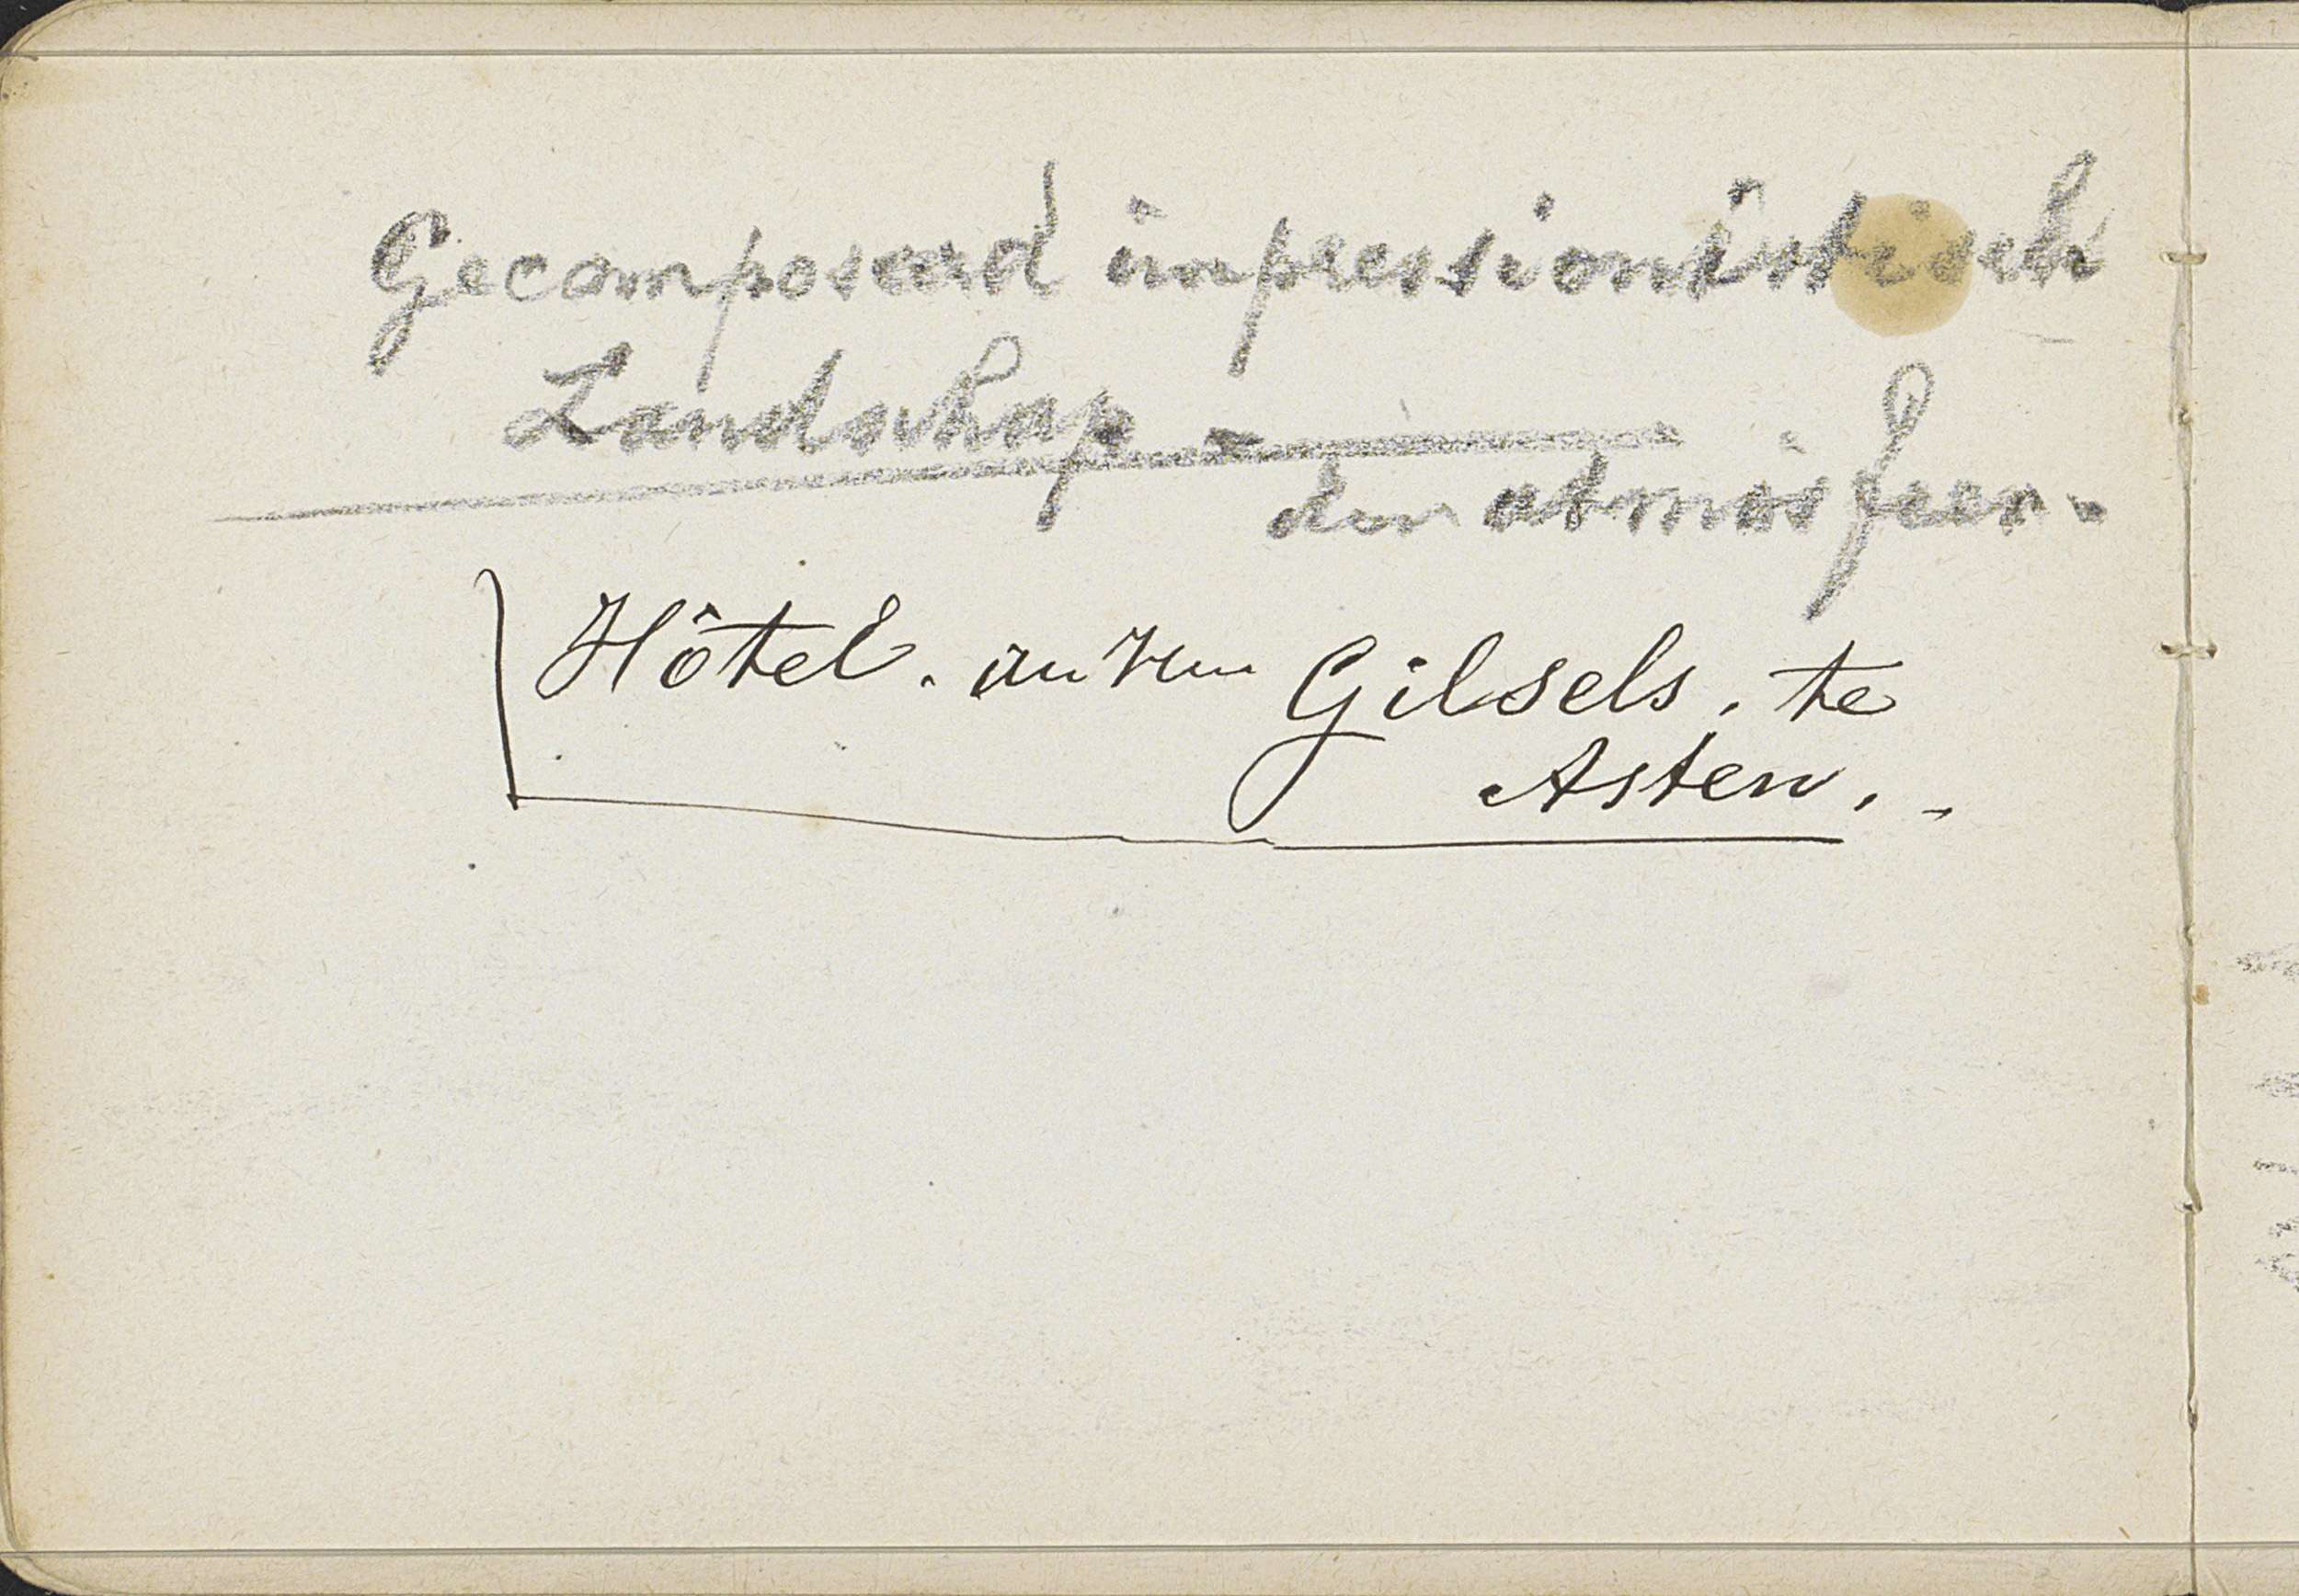 Gecomposeerd impressionistisch
Landschap
der atmosfeer.
Hôtel. van Gilsels. te
Asten. -